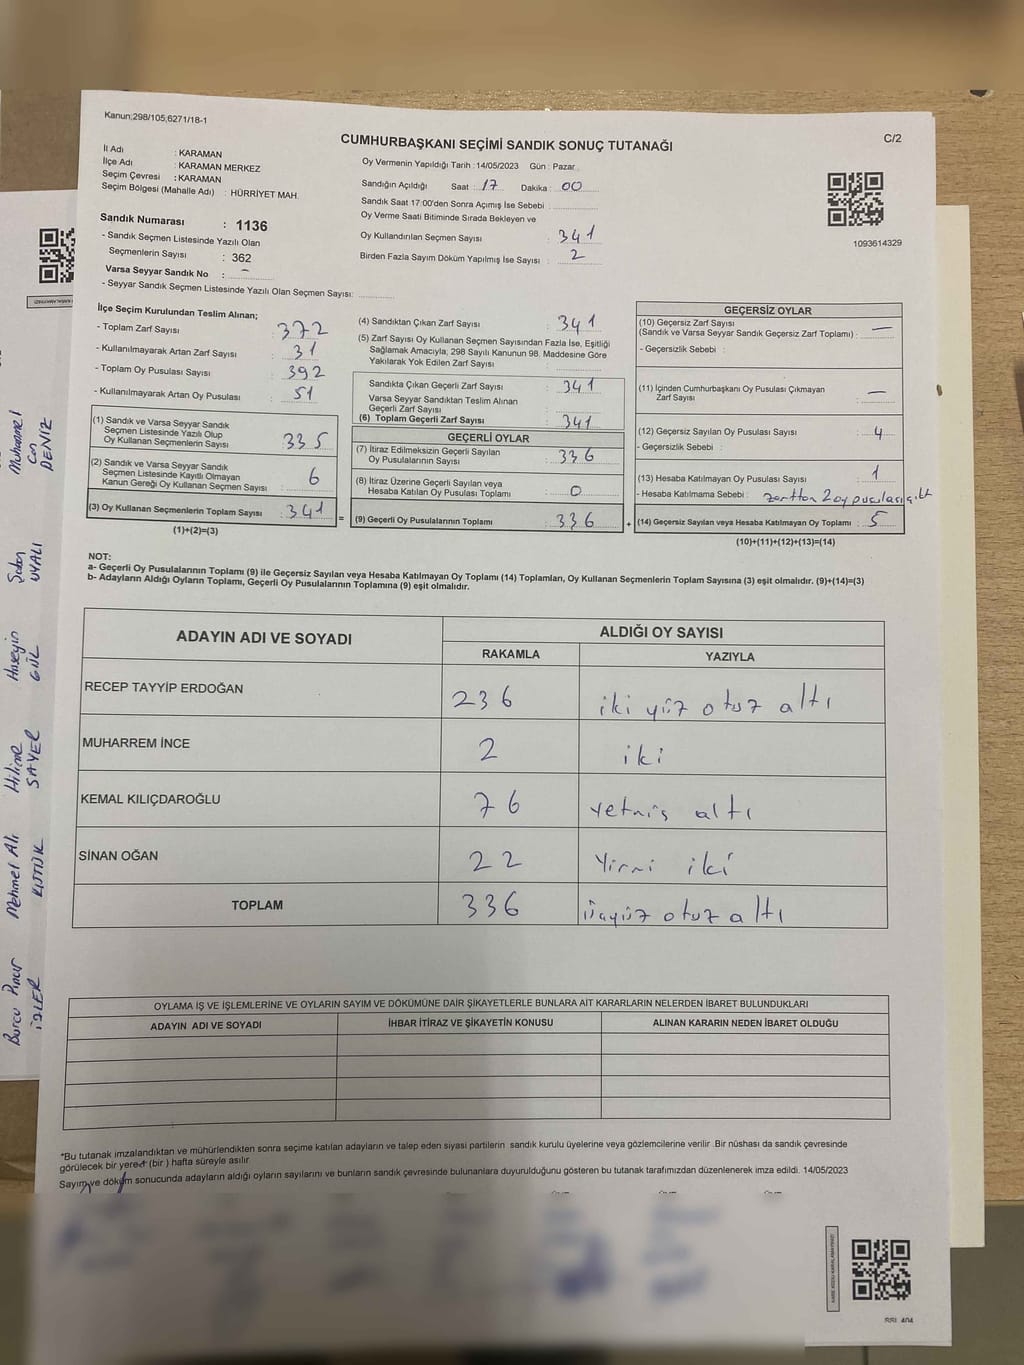 Kanun:298/105;6271/18-1
C/2
CUMHURBAŞKANI SEÇİMİ SANDIK SONUÇ TUTANAĞI
İl Adı : KARAMAN
İlçe Adı : KARAMAN MERKEZ
Seçim Çevresi : KARAMAN
Seçim Bölgesi (Mahalle Adı) : HÜRRİYET MAH.
Sandık Numarası : 1136
- Sandık Seçmen Listesinde Yazılı Olan
Seçmenlerin Sayısı : 362
Varsa Seyyar Sandık No : -
- Seyyar Sandık Seçmen Listesinde Yazılı Olan Seçmen Sayısı:
Oy Vermenin Yapıldığı Tarih : 14/05/2023 Gün : Pazar
Sandığın Açıldığı Saat : 17 Dakika : 00
Sandık Saat 17:00'den Sonra Açımış İse Sebebi :
Oy Verme Saati Bitiminde Sırada Bekleyen ve
Oy Kullandırılan Seçmen Sayısı : 341
Birden Fazla Sayım Döküm Yapılmış İse Sayısı : 2
1093614329
İlçe Seçim Kurulundan Teslim Alınan;
- Toplam Zarf Sayısı : 372
- Kullanılmayarak Artan Zarf Sayısı : 31
- Toplam Oy Pusulası Sayısı : 392
- Kullanılmayarak Artan Oy Pusulası : 51
(1) Sandık ve Varsa Seyyar Sandık
Seçmen Listesinde Yazılı Olup
Oy Kullanan Seçmenlerin Sayısı : 335
(2) Sandık ve Varsa Seyyar Sandık
Seçmen Listesinde Kayıtlı Olmayan
Kanun Gereği Oy Kullanan Seçmen Sayısı : 6
(3) Oy Kullanan Seçmenlerin Toplam Sayısı : 341
(1)+(2)=(3)
(4) Sandıktan Çıkan Zarf Sayısı : 341
(5) Zarf Sayısı Oy Kullanan Seçmen Sayısından Fazla İse, Eşitliği
Sağlamak Amacıyla; 298 Sayılı Kanunun 98. Maddesine Göre
Yakılarak Yok Edilen Zarf Sayısı :
Sandıkta Çıkan Geçerli Zarf Sayısı : 341
Varsa Seyyar Sandıktan Teslim Alınan
Geçerli Zarf Sayısı :
(6) Toplam Geçerli Zarf Sayısı : 341
GEÇERLİ OYLAR
(7) İtiraz Edilmeksizin Geçerli Sayılan
Oy Pusulalarının Sayısı : 336
(8) İtiraz Üzerine Geçerli Sayılan veya
Hesaba Katılan Oy Pusulası Toplamı : 0
= (9) Geçerli Oy Pusulalarının Toplamı : 336 +
GEÇERSİZ OYLAR
(10) Geçersiz Zarf Sayısı
(Sandık ve Varsa Seyyar Sandık Geçersiz Zarf Toplamı) : —
- Geçersizlik Sebebi :
(11) İçinden Cumhurbaşkanı Oy Pusulası Çıkmayan
Zarf Sayısı : —
(12) Geçersiz Sayılan Oy Pusulası Sayısı : 4
- Geçersizlik Sebebi :
(13) Hesaba Katılmayan Oy Pusulası Sayısı : 1
- Hesaba Katılmama Sebebi : zarftan 2 oy pusulası çıktı
(14) Geçersiz Sayılan veya Hesaba Katılmayan Oy Toplamı : 5
(10)+(11)+(12)+(13)=(14)
NOT:
a- Geçerli Oy Pusulalarının Toplamı (9) ile Geçersiz Sayılan veya Hesaba Katılmayan Oy Toplamı (14) Toplamları, Oy Kullanan Seçmenlerin Toplam Sayısına (3) eşit olmalıdır. (9)+(14)=(3)
b- Adayların Aldığı Oyların Toplamı, Geçerli Oy Pusulalarının Toplamına (9) eşit olmalıdır.
ADAYIN ADI VE SOYADI ALDIĞI OY SAYISI
RAKAMLA YAZIYLA
RECEP TAYYİP ERDOĞAN 236 iki yüz otuz altı
MUHARREM İNCE 2 iki
KEMAL KILIÇDAROĞLU 76 Yetmiş altı
SİNAN OĞAN 22 Yirmi iki
TOPLAM 336 üçyüz otuz altı
OYLAMA İŞ VE İŞLEMLERİNE VE OYLARIN SAYIM VE DÖKÜMÜNE DAİR ŞİKAYETLERLE BUNLARA AİT KARARLARIN NELERDEN İBARET BULUNDUKLARI
ADAYIN ADI VE SOYADI İHBAR İTİRAZ VE ŞİKAYETİN KONUSU ALINAN KARARIN NEDEN İBARET OLDUĞU
*Bu tutanak imzalandıktan ve mühürlendikten sonra seçime katılan adayların ve talep eden siyasi partilerin sandık kurulu üyelerine veya gözlemcilerine verilir. Bir nüshası da sandık çevresinde
görülecek bir yerde (bir ) hafta süreyle asılır.
Sayım ve döküm sonucunda adayların aldığı oyların sayılarını ve bunların sandık çevresinde bulunanlara duyurulduğunu gösteren bu tutanak tarafımızdan düzenlenerek imza edildi. 14/05/2023
Muhammet
Can
DENİZ
Şaban
UYALI
Hüseyin
GÜL
SAYER
Mehmet Ali
KÜTÜK
Burcu Pınar
İŞLER